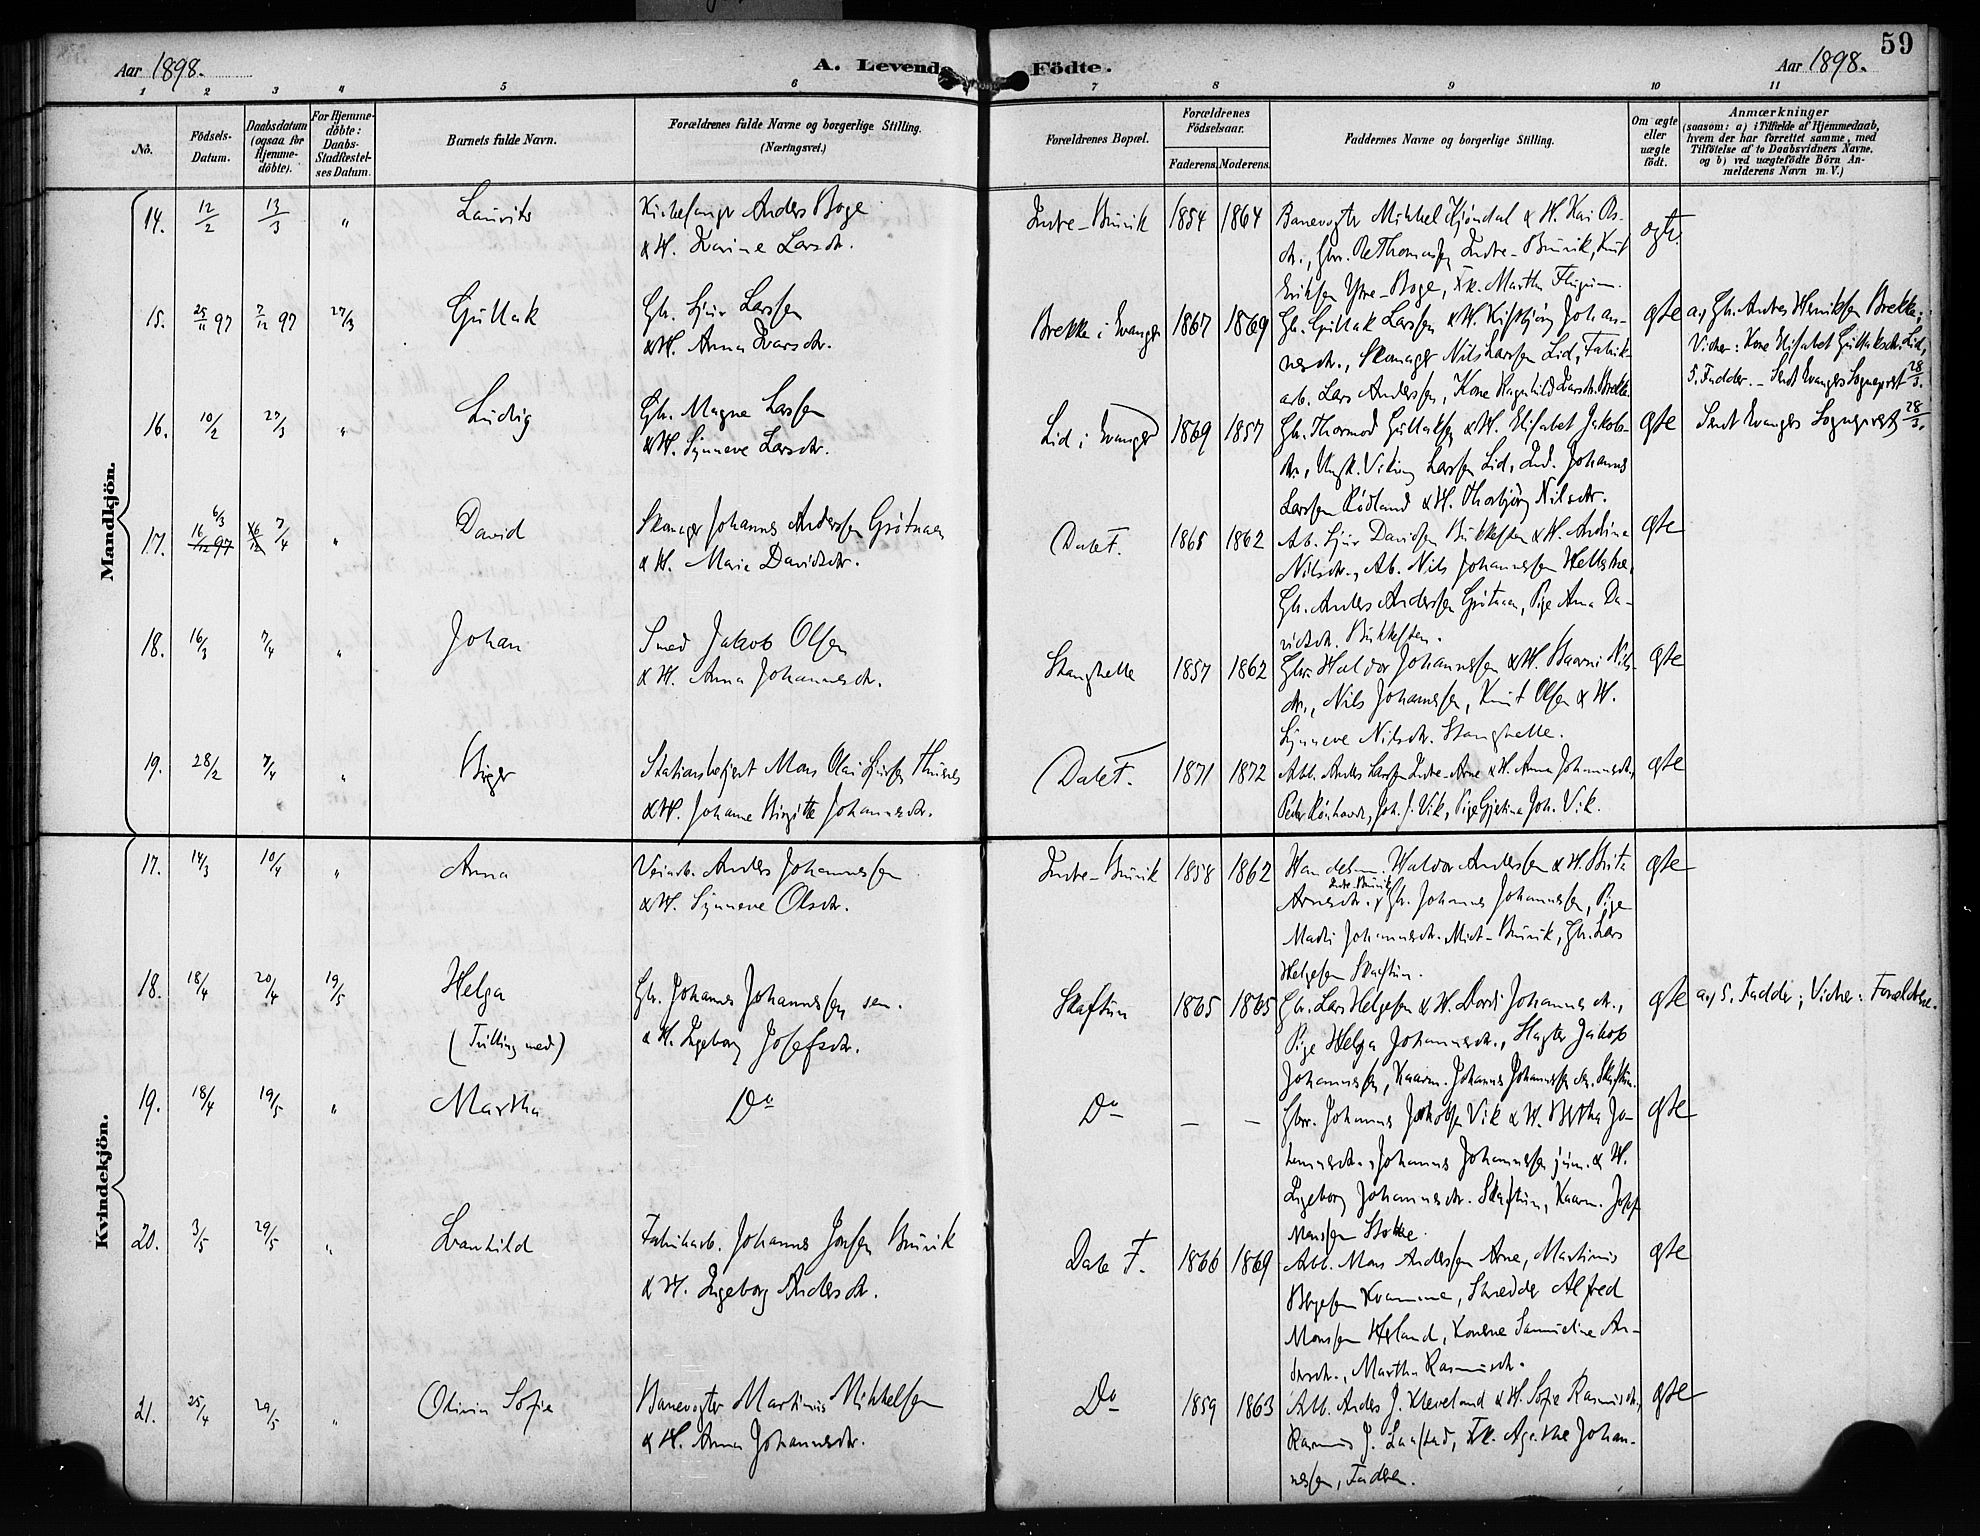 59
Aar 1898.
A. Levende Födte.
Aar 1898.
1 2 3 4 5 6 7 8 9 10 11
No.
Födsels-
Datum.
Daabsdatum
(ogsaa for
Hjemme-
döbte).
For Hjemme-
döbte:
Daabs-
Stadfæstel-
ses Datum.
Barnets fulde Navn.
Forældrenes fulde Navne og borgerlige Stilling.
(Næringsvei.)
Forældrenes Bopæl.
Forældrenes
Födselsaar.
Faderens. Moderens.
Faddernes Navne og borgerlige Stilling.
Om ægte
eller
uægte
födt.
Anmærkninger
(saasom: a) i Tilfælde af Hjemmedaab,
hvem der har forrettet samme, med
Tilföielse af to Daabsvidners Navne,
og b) ved uægtefödte Börn An-
melderens Navn m. V.)
Mandkjön.
14. 12/2 13/3 " Laurits Kirkesanger Anders Boge
& H. Karine Larsdtr.
Indre-Bruvik 1854 1864 Banevogter Mikkel Kjöndal & H. Kari Ols-
dtr., Gbr. Ole Thomassen Indre-Bruvik, Knut
Eriksen Ytre-Boge, Frk. Martha
ægte
15. 25/11 97 2/12 97 27/3 Gullak Gbr. Sjur Larsen
& H. Anna Ivarsdtr.
Brekke i Evanger 1867 1869 Gbr. Gullak Larsen & H. Johan-
nesdtr., Skomager Nils Larsen Lid, Fabrik-
arb. Lars Andersen, Kone Ragnhild Larsdtr. Brekke
ægte a, Gbr. Anders Henriksen Brekke;
Vidner: Kone Elisabet Gullaksdtr. Lid,
5. Fadder. - Sendt Evanger Sogneprest 28/3.
16. 10/2 27/3 " Ludvig Gbr. Magne Larsen
& H. Synneve Larsdtr.
Lid i Evanger 1869 1857 Gbr. Thormod Gullaksen & H. Elisabet Jakobs-
dtr., Ungk. Viking Larsen Lid, Ind. Johannes
Larsen Rödland & H. Thorbjörg Nilsdtr.
ægte Sendt Evanger Sogneprest 28/3.
17. 6/3 16/12 97 7/4 " David Skomager Johannes Andersen Grötnæs
& H. Marie Davidsdtr.
Dale F. 1865 1862 Arb. Sjur Davidsen & H. Andrine
Nilsdtr., Arb. Nils Johannessen Hellestræ,
Gbr. Anders Andersen Grötnæs, Pige Anna Da-
vidsdtr.
ægte
18. 16/3 7/4 " Johan Smed Jakob Olsen
& H. Anna Johannesdtr.
Stanghelle 1857 1862 Gbr. Haldor Johannessen & H. Nils-
dtr., Nils Johannessen, Knut Olsen & H.
Synneve Nilsdtr. Stanghelle.
ægte
19. 28/2 7/4 " Birger Stationsbetjent Mons Olai Sjursen
& H. Johanne Birgitte Johannesdtr.
Dale F. 1871 1872 Arb. Anders Larsen Indre-Arne & H. Anna Johannesdtr.,
Peder Joh. J. Vik, Pige Gjertine Joh. Vik.
ægte
Kvindekjön.
17. 14/3 10/4 " Anna Veiarb. Anders Johannessen
& H. Synneve Olsdtr.
Indre-Bruvik 1858 1862 Handelsm. Haldor Andersen & H. Brita
Arnesdtr. Indre Bruvik, Gbr. Johannes Johannessen, Pige
Marti Johannesdtr. Midt-Bruvik, Gbr. Lars
Helgesen Skaftun.
ægte
18. 18/4 20/4 19/5 Helga
(Tvilling med)
Gbr. Johannes Johannessen sen.
& H. Ingeborg Josefsdtr.
Skaftun 1865 1865 Gbr. Lars Helgesen & H. Dordi Johannesdtr.,
Pige Helga Johannesdtr., Slagter Jakob
Johannessen, Kaarm. Johannes Johannessen Skaftun.
ægte a, 5. Fadder; Vidner: Forældrene.
19. 18/4 19/5 " Martha Do
Do - - Gbr. Johannes Jakobsen Vik & H. Bertha Jo-
hannesdtr., Johannes Johannessen jun. & H.
Ingeborg Johannesdtr. Skaftun, Kaarm. Josef
Monssen Stokke.
ægte
20. 3/5 29/5 " Svanhild Fabrikarb. Johannes Jonsen Bruvik
& H. Ingeborg Andersdtr.
Dale F. 1866 1869 Arb. Mons Andersen Arne, Martinus
Börgesen Kvamme, Skrædder Alfred
Monssen Herland, Konerne Samueline An-
dersdtr., Martha Rasmusdtr.
ægte
21. 25/4 29/5 " Olivia Sofie Banevogter Martinus Mikkelsen
& H. Anna Johannesdtr.
Do 1859 1863 Arb. Anders J. Kleveland & H. Sofie Rasmusdtr.,
Rasmus J. Laastad, Frk. Agathe Johan-
nessen, Faderen.
ægte